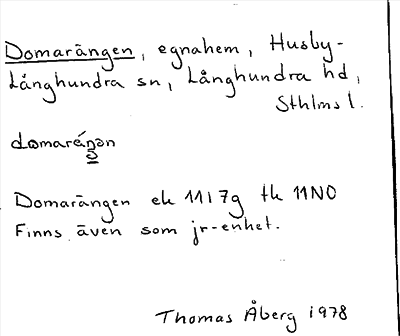 Domarängen, egnahem, Husby-
Långhundra sn, Långhundra hd,
Sthlms l.
domaréŋən
Domarängen ek 11I7g tk 11NO
Finns även som jr-enhet.
Thomas Åberg 1978